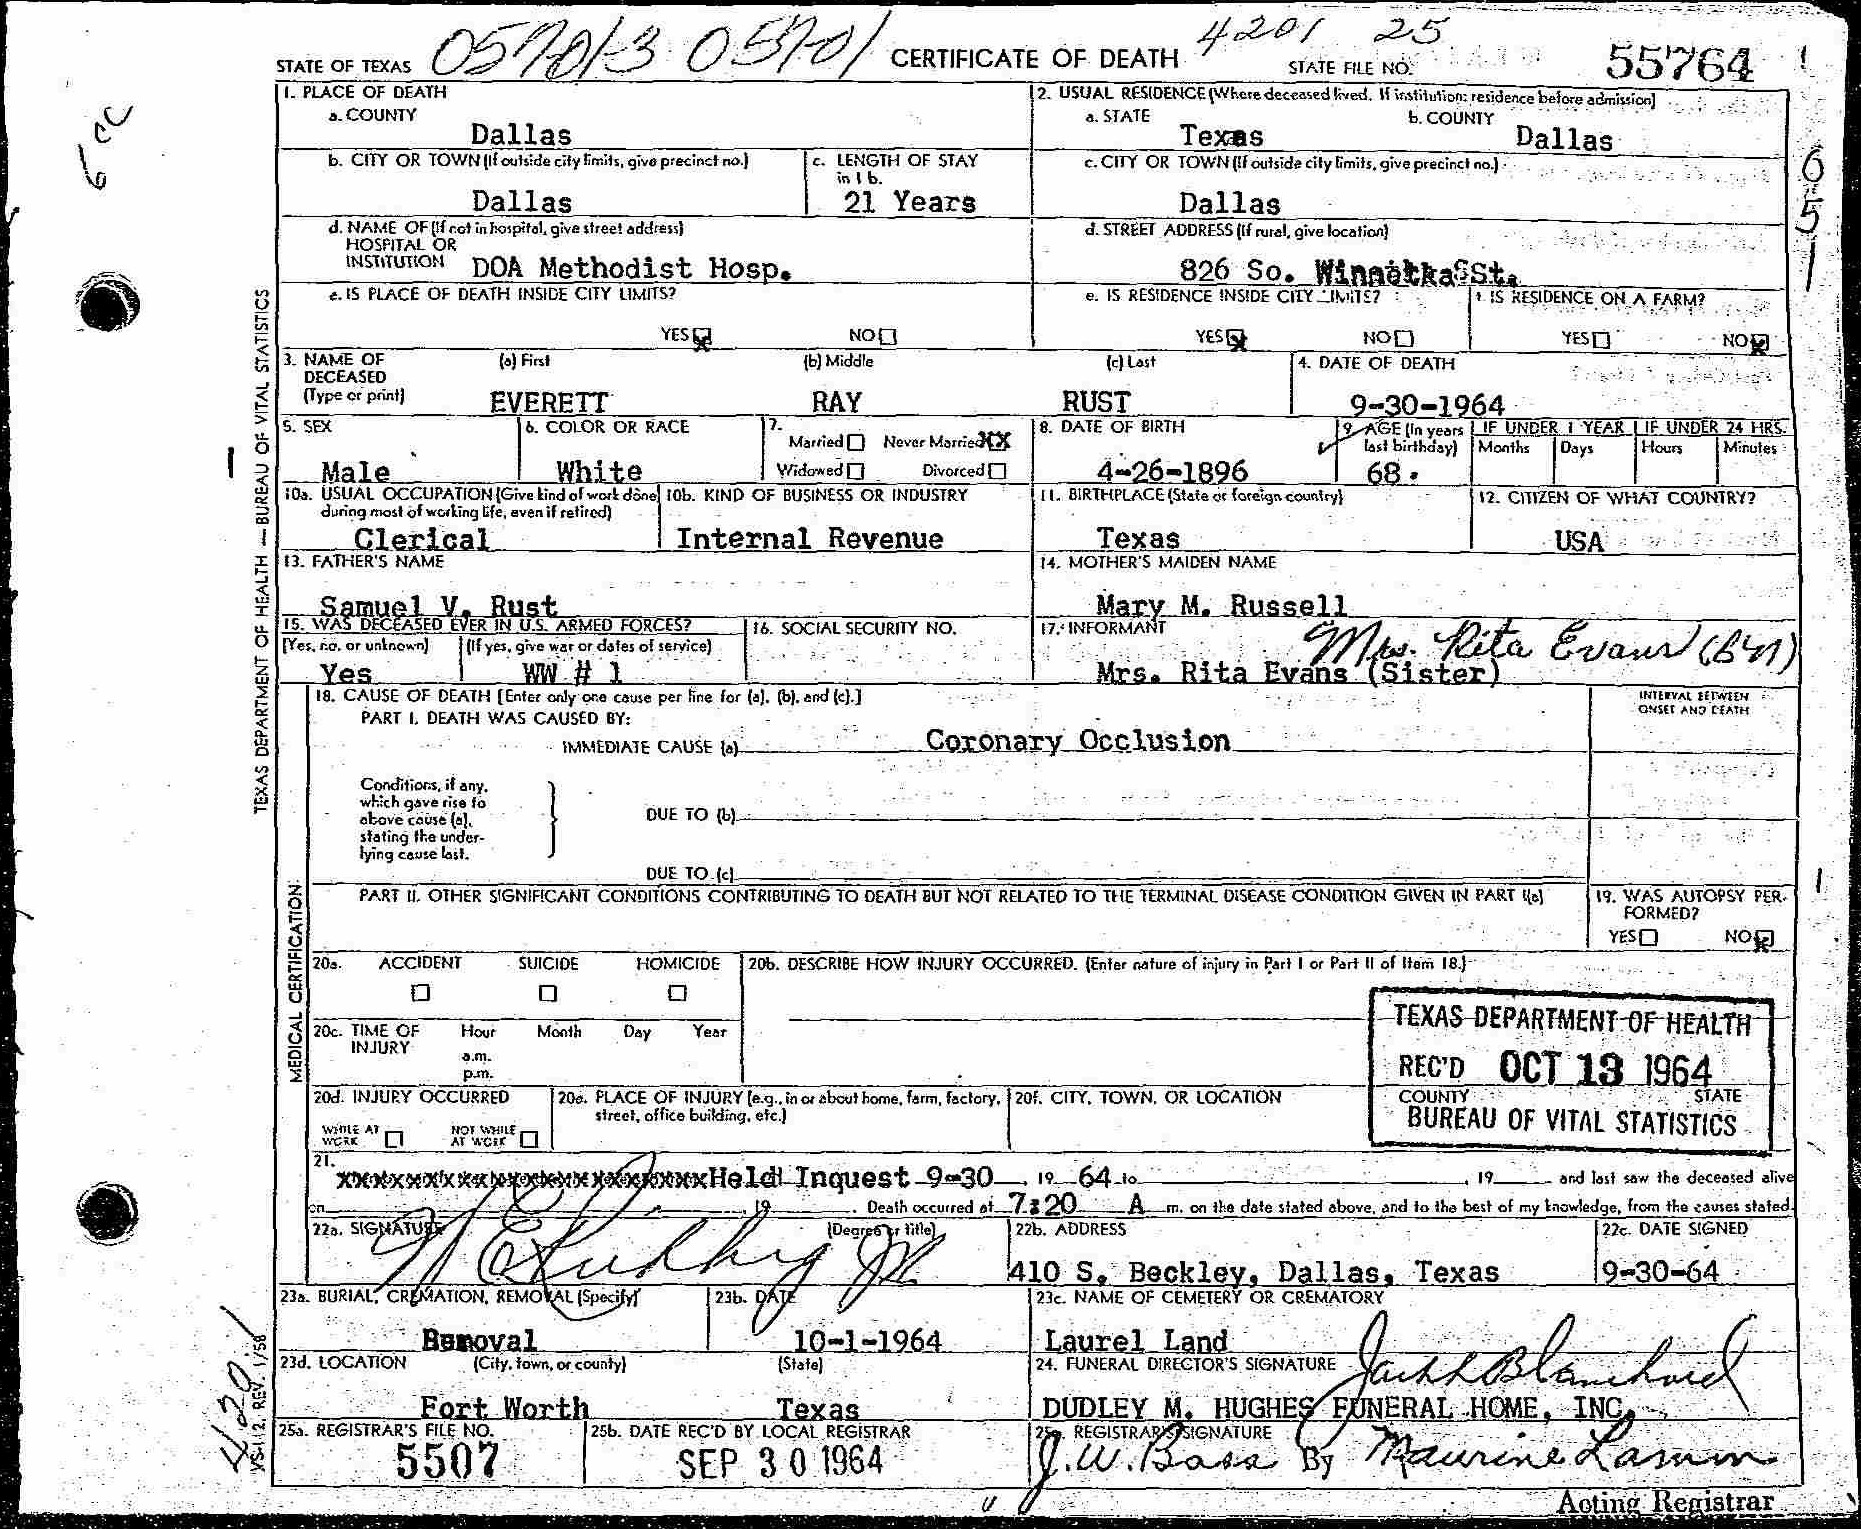 STATE OF TEXAS 057013 05701 CERTIFICATE OF DEATH 4201 25 STATE FILE NO. 55764
1. PLACE OF DEATH
a. COUNTY
Dallas
2. USUAL RESIDENCE (Where deceased lived. If institution: residence before admission)
a. STATE b. COUNTY
Texas Dallas
b. CITY OR TOWN (If outside city limits, give precinct no.)
Dallas
c. LENGTH OF STAY
in 1 b.
21 Years
c. CITY OR TOWN (If outside city limits, give precinct no.)
Dallas
d. NAME OF (If not in hospital, give street address)
HOSPITAL OR
INSTITUTION DOA Methodist Hosp.
d. STREET ADDRESS (If rural, give location)
826 So. Winnetka St.
e. IS PLACE OF DEATH INSIDE CITY LIMITS?
YES NO
e. IS RESIDENCE INSIDE CITY LIMITS?
YES NO
f. IS RESIDENCE ON A FARM?
YES NO
3. NAME OF
DECEASED
(Type or print)
(a) First (b) Middle (c) Last
EVERETT RAY RUST
4. DATE OF DEATH
9-30-1964
5. SEX
Male
6. COLOR OR RACE
White
7.
Married Never Married XX
Widowed Divorced
8. DATE OF BIRTH
4-26-1896
9. AGE (In years
last birthday)
68.
IF UNDER 1 YEAR IF UNDER 24 HRS.
Months Days Hours Minutes
10a. USUAL OCCUPATION (Give kind of work done
during most of working life, even if retired)
Clerical
10b. KIND OF BUSINESS OR INDUSTRY
Internal Revenue
11. BIRTHPLACE (State or foreign country)
Texas
12. CITIZEN OF WHAT COUNTRY?
USA
13. FATHER'S NAME
Samuel V. Rust
14. MOTHER'S MAIDEN NAME
Mary M. Russell
15. WAS DECEASED EVER IN U.S. ARMED FORCES?
(Yes, no, or unknown) (If yes, give war or dates of service)
Yes WW # 1
16. SOCIAL SECURITY NO.
17. INFORMANT Mrs. Rita Evans
Mrs. Rita Evans (Sister)
18. CAUSE OF DEATH [Enter only one cause per line for (a), (b), and (c).]
PART I. DEATH WAS CAUSED BY:
IMMEDIATE CAUSE (a) Coronary Occlusion
INTERVAL BETWEEN
ONSET AND DEATH
Conditions, if any,
which gave rise to
above cause (a),
stating the under-
lying cause last.
DUE TO (b)
DUE TO (c)
PART II. OTHER SIGNIFICANT CONDITIONS CONTRIBUTING TO DEATH BUT NOT RELATED TO THE TERMINAL DISEASE CONDITION GIVEN IN PART I(a)
19. WAS AUTOPSY PER-
FORMED?
YES NO
20a. ACCIDENT SUICIDE HOMICIDE
20b. DESCRIBE HOW INJURY OCCURRED. (Enter nature of injury in Part I or Part II of Item 18.)
20c. TIME OF
INJURY
Hour Month Day Year
a.m.
p.m.
TEXAS DEPARTMENT OF HEALTH
REC'D OCT 13 1964
BUREAU OF VITAL STATISTICS
20d. INJURY OCCURRED
WHILE AT
WORK
NOT WHILE
AT WORK
20e. PLACE OF INJURY (e.g., in or about home, farm, factory,
street, office building, etc.)
20f. CITY, TOWN, OR LOCATION COUNTY STATE
21.
Held Inquest 9-30, 19 64 to , 19 and last saw the deceased alive
on , 19 . Death occurred at 7:20 A m. on the date stated above, and to the best of my knowledge, from the causes stated.
22a. SIGNATURE (Degree or title)
22b. ADDRESS
410 S. Beckley, Dallas, Texas
22c. DATE SIGNED
9-30-64
23a. BURIAL, CREMATION, REMOVAL (Specify)
Removal
23b. DATE
10-1-1964
23c. NAME OF CEMETERY OR CREMATORY
Laurel Land
23d. LOCATION (City, town, or county) (State)
Fort Worth Texas
24. FUNERAL DIRECTOR'S SIGNATURE Jack Blanchard
DUDLEY M. HUGHES FUNERAL HOME, INC.
25a. REGISTRAR'S FILE NO.
5507
25b. DATE REC'D BY LOCAL REGISTRAR
SEP 30 1964
25c. REGISTRAR'S SIGNATURE
J. W. Bass By Maurine
Acting Registrar
TEXAS DEPARTMENT OF HEALTH — BUREAU OF VITAL STATISTICS
MEDICAL CERTIFICATION
VS-112 REV. 1/58